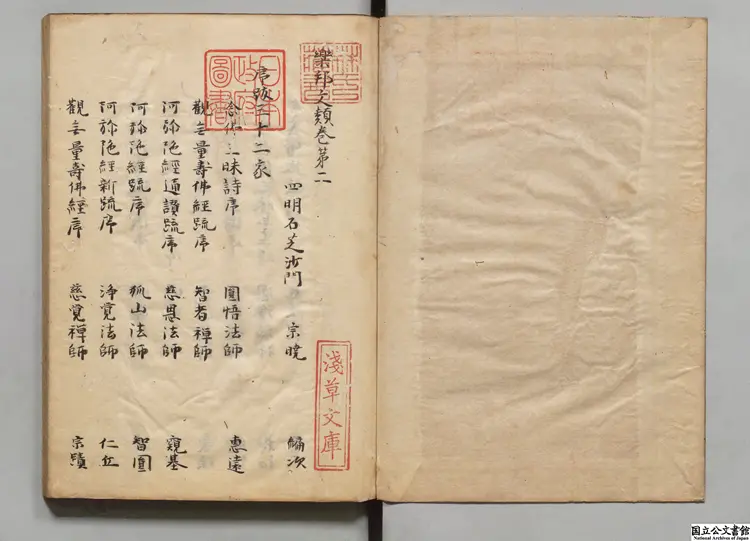 樂邦文類卷第二
四明石芝沙門 宗曉 編次
序跋三十二家
念佛三昧詩序 圓悟法師 惠遠
觀無量壽佛經疏序 智者禪師
阿弥陀經通讃疏序 慈恩法師 窺基
阿弥陀經疏序 孤山法師 智圓
阿弥陀經新疏序 淨覚法師 仁岳
觀無量壽佛經序 慈覚禅師 宗賾
林氏藏書
日本政府圖書
淺草文庫
国立公文書館
National Archives of Japan